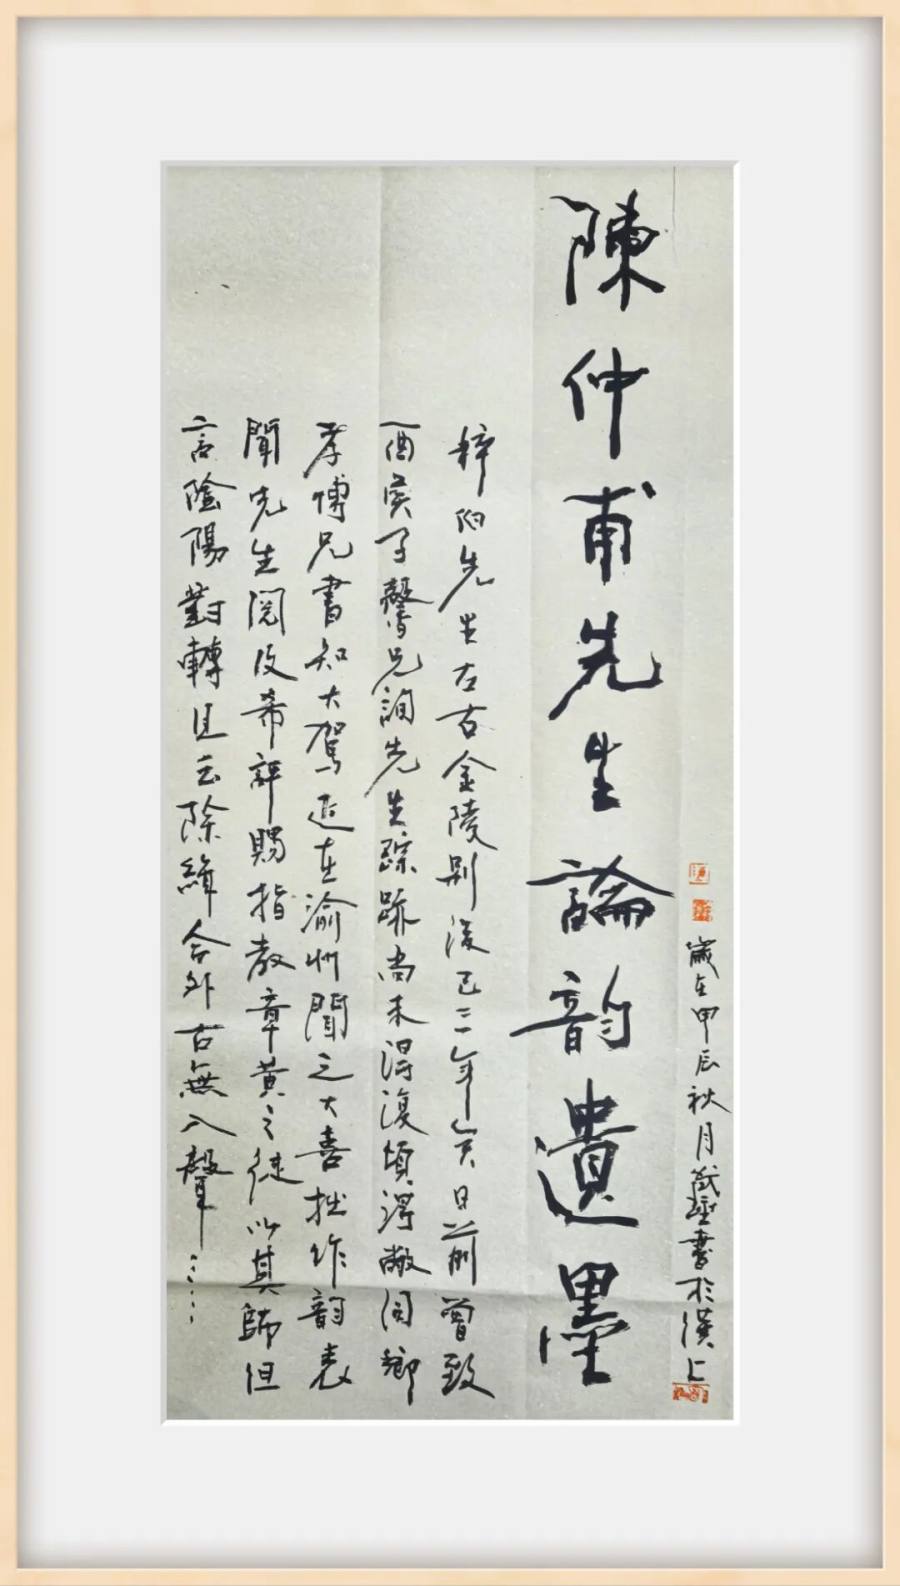 陳仲甫先生論韵遺墨
梓伯先生左右金陵別後已三年矣日前曾致
酉侯子馨兄詢先生踪跡尚未得復頃得敝同鄉
孝博兄書知大駕近在渝州聞之大喜拙作韵表
聞先生閱及希評賜指教章黃之徒以其師但
言陰陽對轉且云除緝合外古無入聲……
歲在甲辰秋月書於漢上